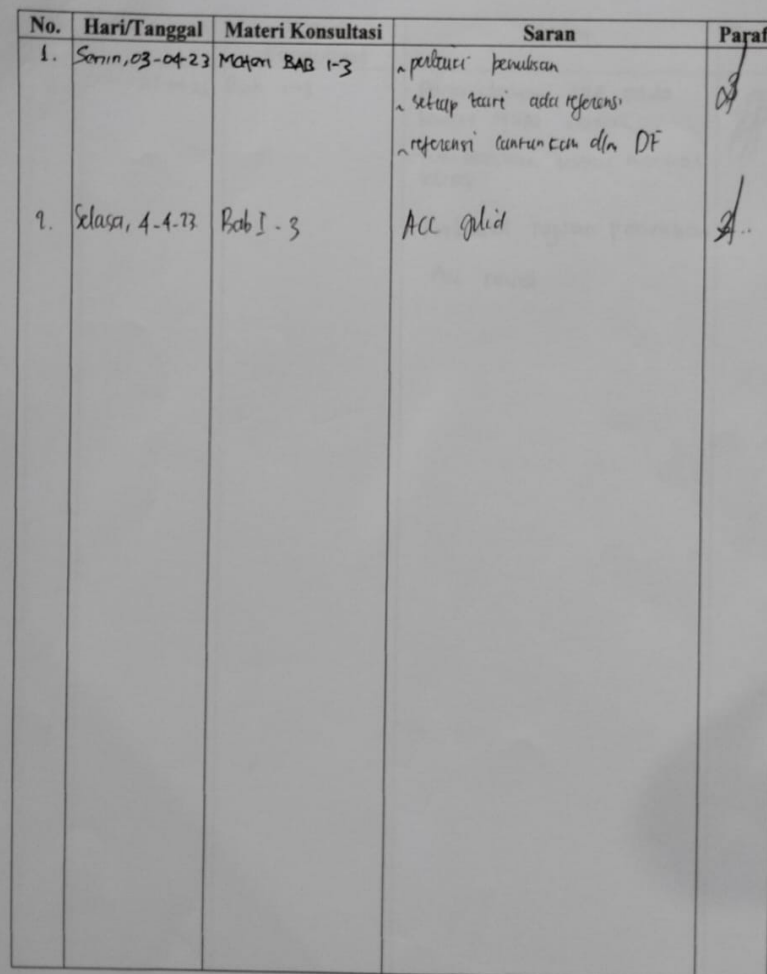 No. Hari/Tanggal Materi Konsultasi Saran Paraf
1. Senin, 03-04-23 Materi BAB 1-3 - perbaiki penulisan
- setiap teori ada referensi
- referensi cantumkan dlm DF
2. Selasa, 4-4-23 Bab I - 3 ACC